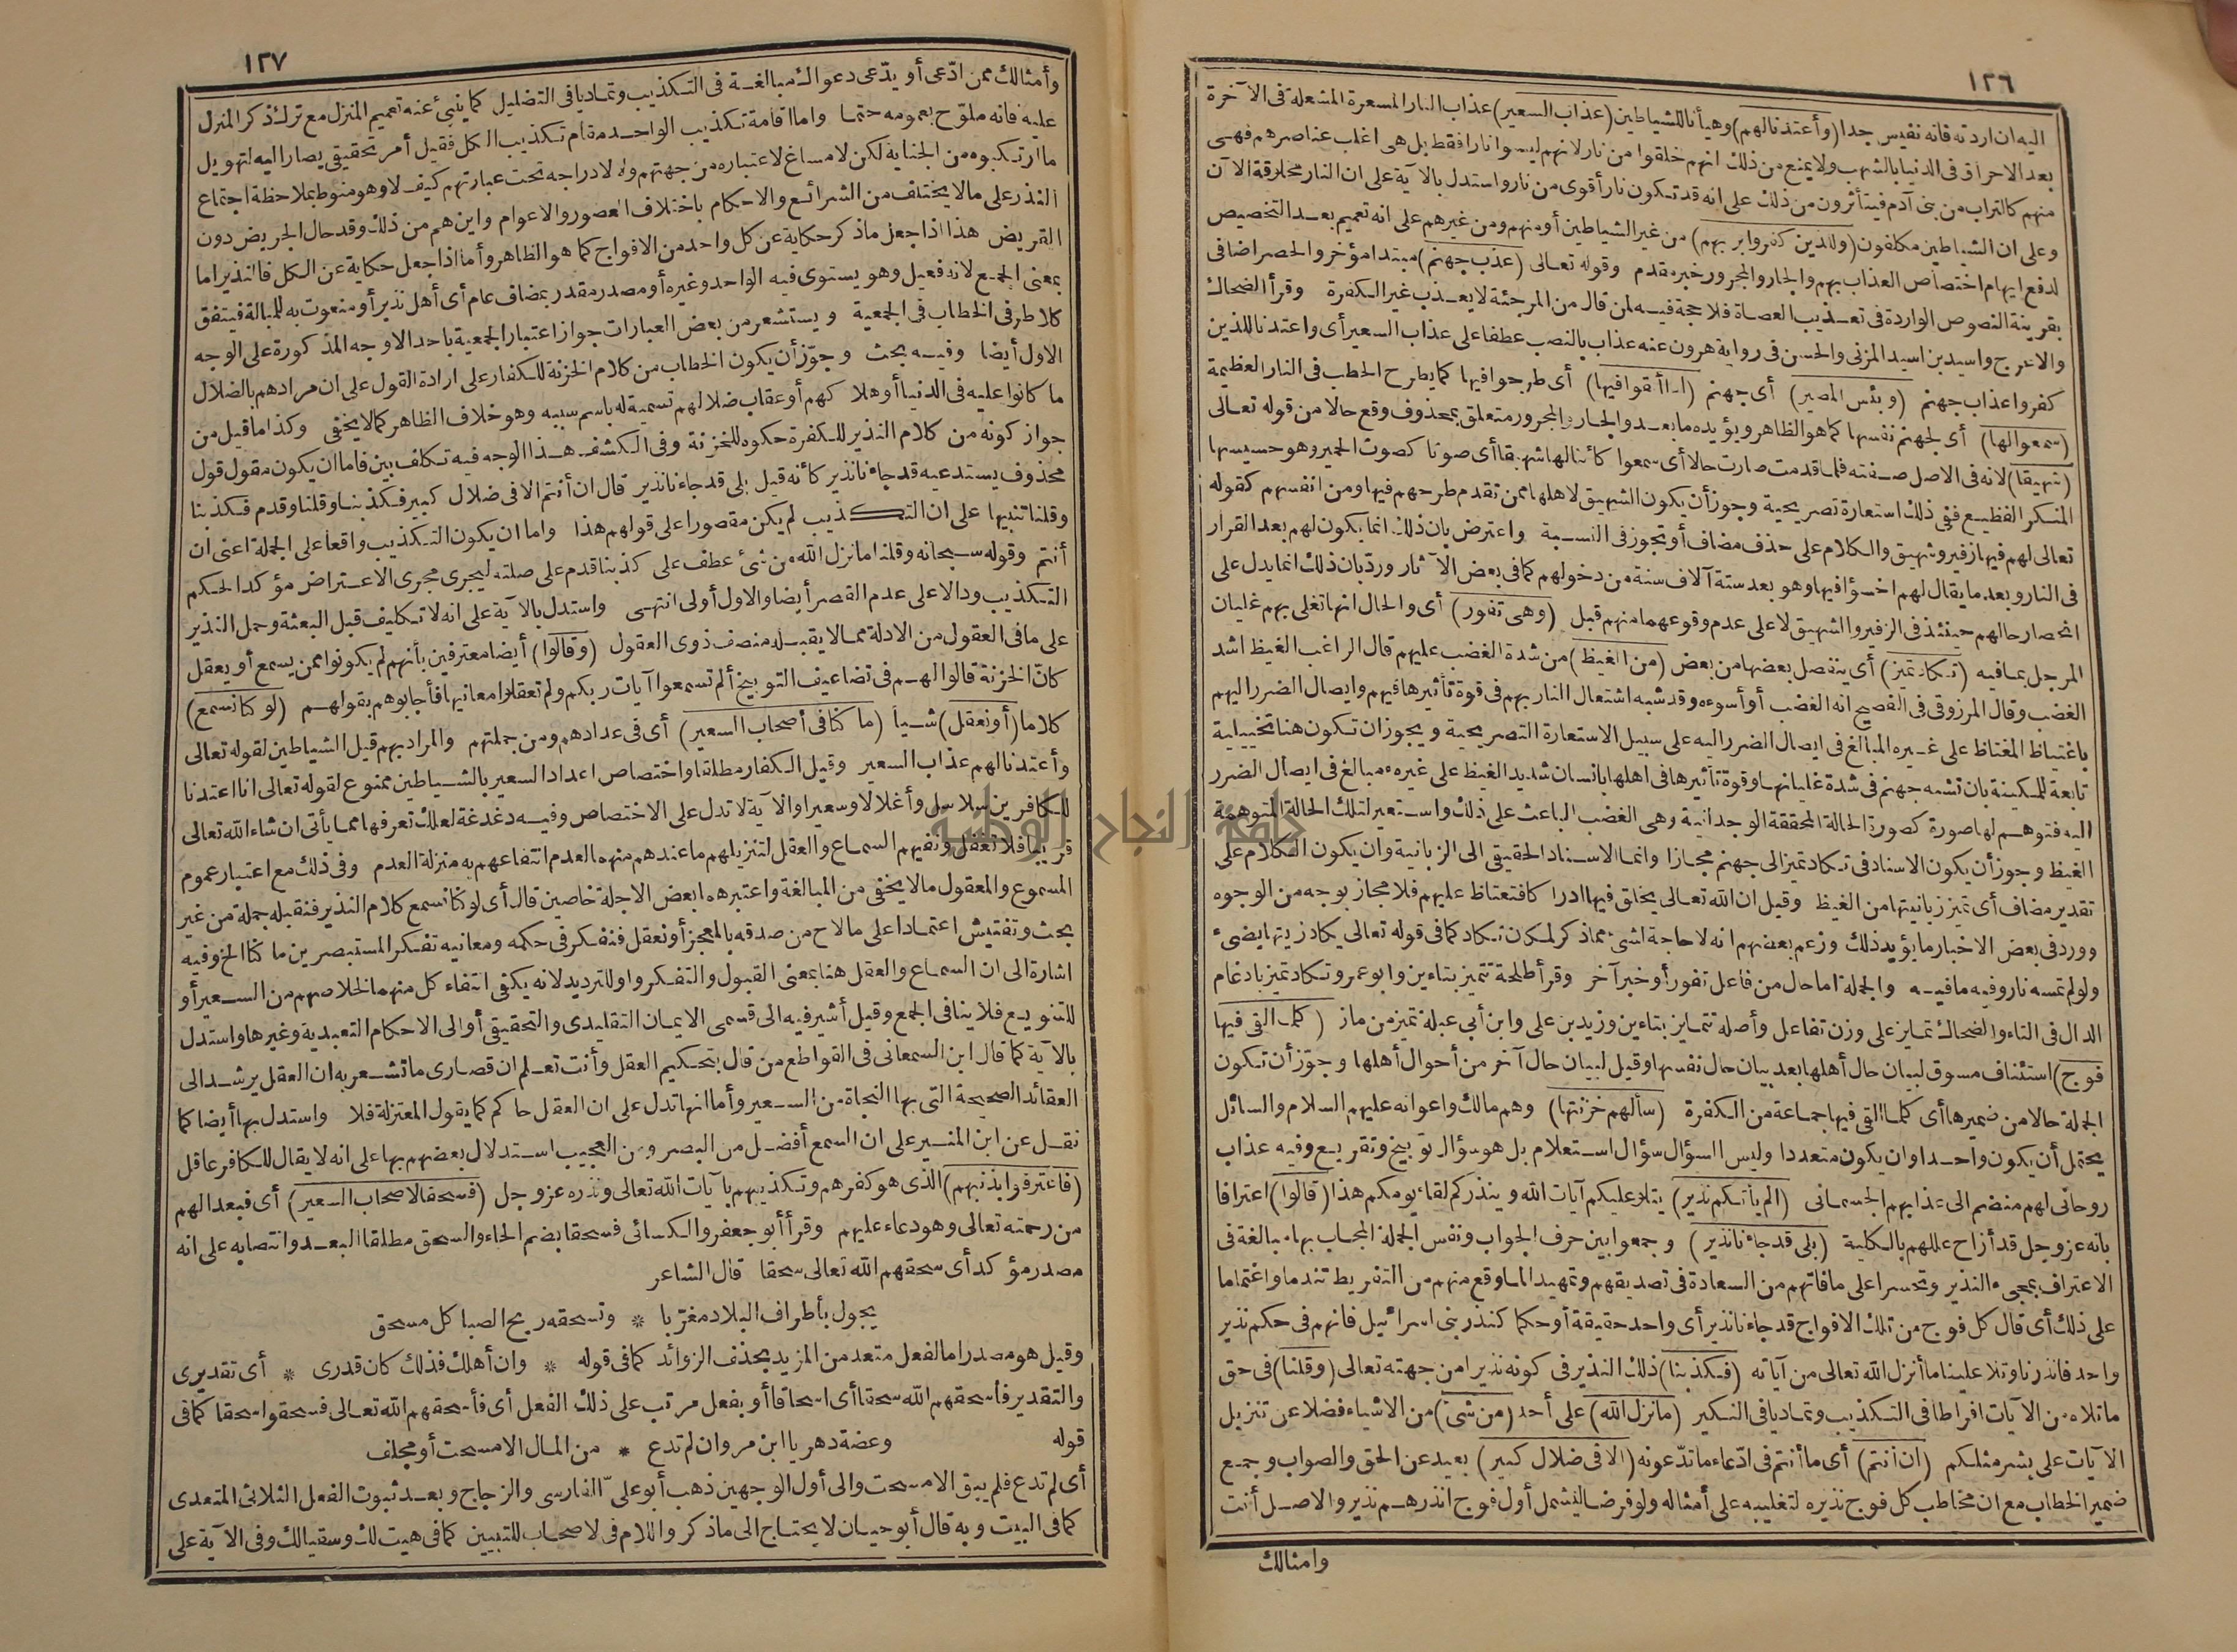 ١٢٦
اليه ان اردته فانه نفيس جدا (وأعتدنا لهم) وهيأنا للشياطين (عذاب السعير) عذاب النار المسعرة المشعلة فى الآخرة
بعد الاحراق فى الدنيا بالشهب ولا يمنع من ذلك انهم خلقوا من نار لانهم ليسوا نارا فقط بل هى اغلب عناصرهم فهى
منهم كالتراب من بنى آدم فيتأثرون من ذلك على انه قد تكون نار أقوى من نار واستدل بالآية على ان النار مخلوقة الآن
وعلى ان الشياطين مكلفون (وللذين كفروا بربهم) من غير الشياطين أو منهم ومن غيرهم على انه تعميم بعد التخصيص
لدفع ايهام اختصاص العذاب بهم والجار والمجرور خبر مقدم وقوله تعالى (عذاب جهنم) مبتدا مؤخر والحصر اضافى
بقرينة النصوص الواردة فى تعذيب العصاة فلا حجة فيه لمن قال من المرجئة لا يعذب غير الكفرة وقرأ الضحاك
والاعرج واسيد بن اسيد المزنى والحسن فى رواية هرون عنه عذاب بالنصب عطفا على عذاب السعير أى واعتدنا للذين
كفروا عذاب جهنم (وبئس المصير) أى جهنم (اذا ألقوا فيها) أى طرحوا فيها كما يطرح الحطب فى النار العظيمة
(سمعوا لها) أى لجهنم نفسها كما هو الظاهر ويؤيده ما بعد والجار والمجرور متعلق بمحذوف وقع حالا من قوله تعالى
(شهيقا) لانه فى الاصل صفته فلما قدمت صارت حالا أى سمعوا كائنا لها شهيقا أى صوتا كصوت الحمير وهو حسيسها
المنكر الفظيع ففى ذلك استعارة تصريحية وجوز أن يكون الشهيق لاهلها ممن تقدم طرحهم فيها ومن انفسهم كقوله
تعالى لهم فيها زفير وشهيق والكلام على حذف مضاف أو تجوز فى النسبة واعترض بان ذلك انما يكون لهم بعد القرار
فى النار وبعد ما يقال لهم اخسؤا فيها وهو بعد ستة آلاف سنة من دخولهم كما فى بعض الآثار وردّ بان ذلك انما يدل على
انحصار حالهم حينئذ فى الزفير والشهيق لا على عدم وقوعهما منهم قبل (وهى تفور) أى والحال انها تغلى بهم غليان
المرجل بما فيه (تكاد تميز) أى ينفصل بعضها من بعض (من الغيظ) من شدة الغضب عليهم قال الراغب الغيظ اشد
الغضب وقال المرزوقى فى الفصيح انه الغضب أو أسوءه وقد شبه اشتعال النار بهم فى قوة تأثيرها فيهم وايصال الضرر اليهم
باغتياظ المغتاظ على غيره المبالغ فى ايصال الضرر اليه على سبيل الاستعارة التصريحية ويجوز ان تكون هنا تخييلية
تابعة للمكنية بان تشبه جهنم فى شدة غليانها وقوة تأثيرها فى اهلها بانسان شديد الغيظ على غيره مبالغ فى ايصال الضرر
اليه فتوهم لها صورة كصورة الحالة المحققة الوجدانية وهى الغضب الباعث على ذلك واستعير لتلك الحالة المتوهمة
الغيظ وجوز أن يكون الاسناد فى تكاد تميز الى جهنم مجازا وانما الاسناد الحقيقى الى الزبانية وان يكون الكلام على
تقدير مضاف أى تميز زبانيتها من الغيظ وقيل ان الله تعالى يخلق فيها ادراكا فتغتاظ عليهم فلا مجاز بوجه من الوجوه
وورد فى بعض الاخبار ما يؤيد ذلك وزعم بعضهم انه لا حاجة لشئ مما ذكر لمكان تكاد كما فى قوله تعالى يكاد زيتها يضىء
ولو لم تمسه نار وفيه ما فيه والجملة اما حال من فاعل تفور أو خبر آخر وقرأ طلحة تتميز بتاءين وابو عمرو تكاد تميز بادغام
الدال فى التاء والضحاك تمايز على وزن تفاعل وأصله تتمايز بتاءين وزيد بن على وابن أبي عبلة تميز من ماز (كلما القى فيها
فوج) استئناف مسوق لبيان حال أهلها بعد بيان حال نفسها وقيل لبيان حال آخر من أحوال أهلها وجوّز أن تكون
الجملة حالا من ضميرها أى كلما القى فيها جماعة من الكفرة (سألهم خزنتها) وهم مالك واعوانه عليهم السلام والسائل
يحتمل أن يكون واحدا وان يكون متعددا وليس السؤال سؤال استعلام بل هو سؤال توبيخ وتقريع وفيه عذاب
روحانى لهم منضم الى عذابهم الجسمانى (الم يأتكم نذير) يتلو عليكم آيات الله وينذركم لقاء يومكم هذا (قالوا) اعترافا
بانه عز وجل قد أزاح عللهم بالكلية (بلى قد جاءنا نذير) وجمعوا بين حرف الجواب ونفس الجملة المجاب بها مبالغة فى
الاعتراف بمجىء النذير وتحسرا على ما فاتهم من السعادة فى تصديقهم وتمهيدا لما وقع منهم من التفريط تندما واغتماما
على ذلك أى قال كل فوج من تلك الافواج قد جاءنا نذير أى واحد حقيقة أو حكما كنذر بنى اسرائيل فانهم فى حكم نذير
واحد فانذرنا وتلا علينا ما أنزل الله تعالى من آياته (فكذبنا) ذلك النذير فى كونه نذيرا من جهته تعالى (وقلنا) فى حق
ما تلاه من الآيات افراطا فى التكذيب وتماديا فى النكير (ما نزل الله) على أحد (من شئ) من الاشياء فضلا عن تنزيل
الآيات على بشر مثلكم (ان أنتم) أى ما أنتم فى ادّعاء ما تدّعونه (الا فى ضلال كبير) بعيد عن الحق والصواب وجمع
ضمير الخطاب مع ان مخاطب كل فوج نذيره لتغليبه على أمثاله ولو فرضا ليشمل أول فوج انذرهم نذير والاصل أنت
وامثالك
١٢٧
وأمثالك ممن ادّعى أو يدّعى دعواك مبالغة فى التكذيب وتماديا فى التضليل كما ينبئ عنه تعميم المنزل مع ترك ذكر المنزل
عليه فانه ملوّح بعمومه حتما واما اقامة تكذيب الواحد مقام تكذيب الكل فقيل أمر تحقيقى يصار اليه لتهويل
ما ارتكبوه من الجناية لكن لا مساغ لاعتباره من جهتهم ولا لادراجه تحت عبارتهم كيف لا وهو منوط بملاحظة اجتماع
النذر على ما لا يختلف من الشرائع والاحكام باختلاف العصور والاعوام واين هم من ذلك وقد حال الجريض دون
القريض هذا اذا جعل ما ذكر حكاية عن كل واحد من الافواج كما هو الظاهر وأما اذا جعل حكاية عن الكل فالنذير اما
بمعنى الجمع لانه فعيل وهو يستوى فيه الواحد وغيره أو مصدر مقدر بمضاف عام أى أهل نذير أو منعوت به للمبالغة فيتفق
كلا طرفى الخطاب فى الجمعية ويستشعر من بعض العبارات جواز اعتبار الجمعية باحد الاوجه المذكورة على الوجه
الاول أيضا وفيه بحث وجوّز أن يكون الخطاب من كلام الخزنة للكفار على ارادة القول على ان مرادهم بالضلال
ما كانوا عليه فى الدنيا أو هلاكهم أو عقاب ضلالهم تسمية له باسم سببه وهو خلاف الظاهر كما لا يخفى وكذا ما قيل من
جواز كونه من كلام النذير للكفرة حكوه للخزنة وفى الكشف هذا الوجه فيه تكلف بين فاما ان يكون مقول قول
محذوف يستدعيه قد جاءنا نذير كأنه قيل بلى قد جاءنا نذير قال ان أنتم الا فى ضلال كبير فكذبنا وقلنا وقدم فكذبنا
وقلنا تنبيها على ان التكذيب لم يكن مقصورا على قولهم هذا واما ان يكون التكذيب واقعا على الجملة اعنى ان
أنتم وقوله سبحانه وقلنا ما نزل الله من شئ عطف على كذبنا قدم على صلته ليجرى مجرى الاعتراض مؤكدا لحكم
التكذيب ودالا على عدم القصر أيضا والاول أولى انتهى واستدل بالآية على انه لا تكليف قبل البعثة وحمل النذير
على ما فى العقول من الادلة مما لا يقبله منصف ذوى العقول (وقالوا) أيضا معترفين بأنهم لم يكونوا ممن يسمع أو يعقل
كانّ الخزنة قالوا لهم فى تضاعيف التوبيخ ألم تسمعوا آيات ربكم ولم تعقلوا معانيها فأجابوهم بقولهم (لو كنا نسمع)
كلاما (أو نعقل) شيأ (ما كنا فى أصحاب السعير) أى فى عدادهم ومن جملتهم والمراد بهم قيل الشياطين لقوله تعالى
وأعتدنا لهم عذاب السعير وقيل الكفار مطلقا واختصاص اعداد السعير بالشياطين ممنوع لقوله تعالى انا اعتدنا
للكافرين سلاسل وأغلالا وسعيرا والآية لا تدل على الاختصاص وفيه دغدغة لعلك تعرفها مما يأتى ان شاء الله تعالى
قريبا فلا تغفل ونفيهم السماع والعقل لتنزيلهم ما عندهم منهما لعدم انتفاعهم به منزلة العدم وفى ذلك مع اعتبار عموم
المسموع والمعقول ما لا يخفى من المبالغة واعتبرهما بعض الاجلة خاصين قال أى لو كنا نسمع كلام النذير فنقبله جملة من غير
بحث وتفتيش اعتمادا على ما لاح من صدقه بالمعجز أو نعقل فنفكر فى حكمه ومعانيه تفكر المستبصرين ما كنا الخ وفيه
اشارة الى ان السماع والعقل هنا بمعنى القبول والتفكر واو للترديد لانه يكفى انتفاء كل منهما لخلاصهم من السعير أو
للتنويع فلا ينافى الجمع وقيل أشير فيه الى قسمى الايمان التقليدى والتحقيقى أو الى الاحكام التعبدية وغيرها واستدل
بالآية كما قال ابن السمعانى فى القواطع من قال بتحكيم العقل وأنت تعلم ان قصارى ما تشعر به ان العقل يرشد الى
العقائد الصحيحة التى بها النجاة من السعير وأما انها تدل على ان العقل حاكم كما يقول المعتزلة فلا واستدل بها أيضا كما
نقل عن ابن المنير على ان السمع أفضل من البصر ومن العجيب استدلال بعضهم بها على انه لا يقال للكافر عاقل
(فاعترفوا بذنبهم) الذى هو كفرهم وتكذيبهم بآيات الله تعالى ونذره عز وجل (فسحقا لاصحاب السعير) أى فبعدا لهم
من رحمته تعالى وهو دعاء عليهم وقرأ أبو جعفر والكسائى فسحقا بضم الحاء والسحق مطلقا البعد وانتصابه على انه
مصدر مؤكد أى سحقهم الله تعالى سحقا قال الشاعر
يجول بأطراف البلاد مغرّبا * وتسحقه ريح الصبا كل مسحق
وقيل هو مصدر اما لفعل متعد من المزيد بحذف الزوائد كما فى قوله * وان أهلك فذلك كان قدرى * أى تقديرى
والتقدير فأسحقهم الله سحقا أى اسحاقا أو بفعل مرتب على ذلك الفعل أى فأسحقهم الله تعالى فسحقوا سحقا كما فى
قوله وعضة دهر يا ابن مروان لم تدع * من المال الا مسحت أو مجلف
أى لم تدع فلم يبق الا مسحت والى أول الوجهين ذهب أبو علىّ الفارسى والزجاج وبعد ثبوت الفعل الثلاثى المتعدى
كما فى البيت وبه قال أبو حيان لا يحتاج الى ما ذكر واللام فى لاصحاب للتبيين كما فى هيت لك وسقيا لك وفى الآية على
جامعة النجاح الوطنية